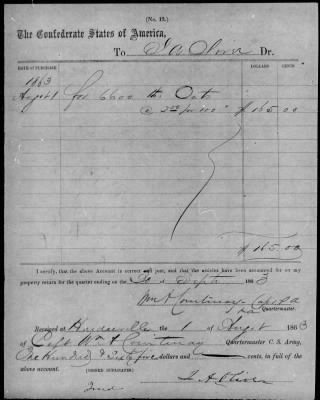 (No. 12.)
The Confederate States of America,
To J A Oliver Dr.
DATE OF PURCHASE. DOLLARS CENTS
1863
August 1 for 6600 lbs Oats
@ 2 50 per 100 " $ 165.00
$ 165.00
I certify, that the above Account is correct and just, and that the articles have been accounted for on my
property return for the quarter ending on the 30 Sept 1863
Wm A Courtenay Capt &
Quartermaster.
Received at the 1 of August 1863
of Capt Wm A Courtenay Quartermaster C. S. Army,
One Hundred & Sixty five dollars and cents, in full of the
above account. (SIGNED DUPLICATES.)
J A Oliver